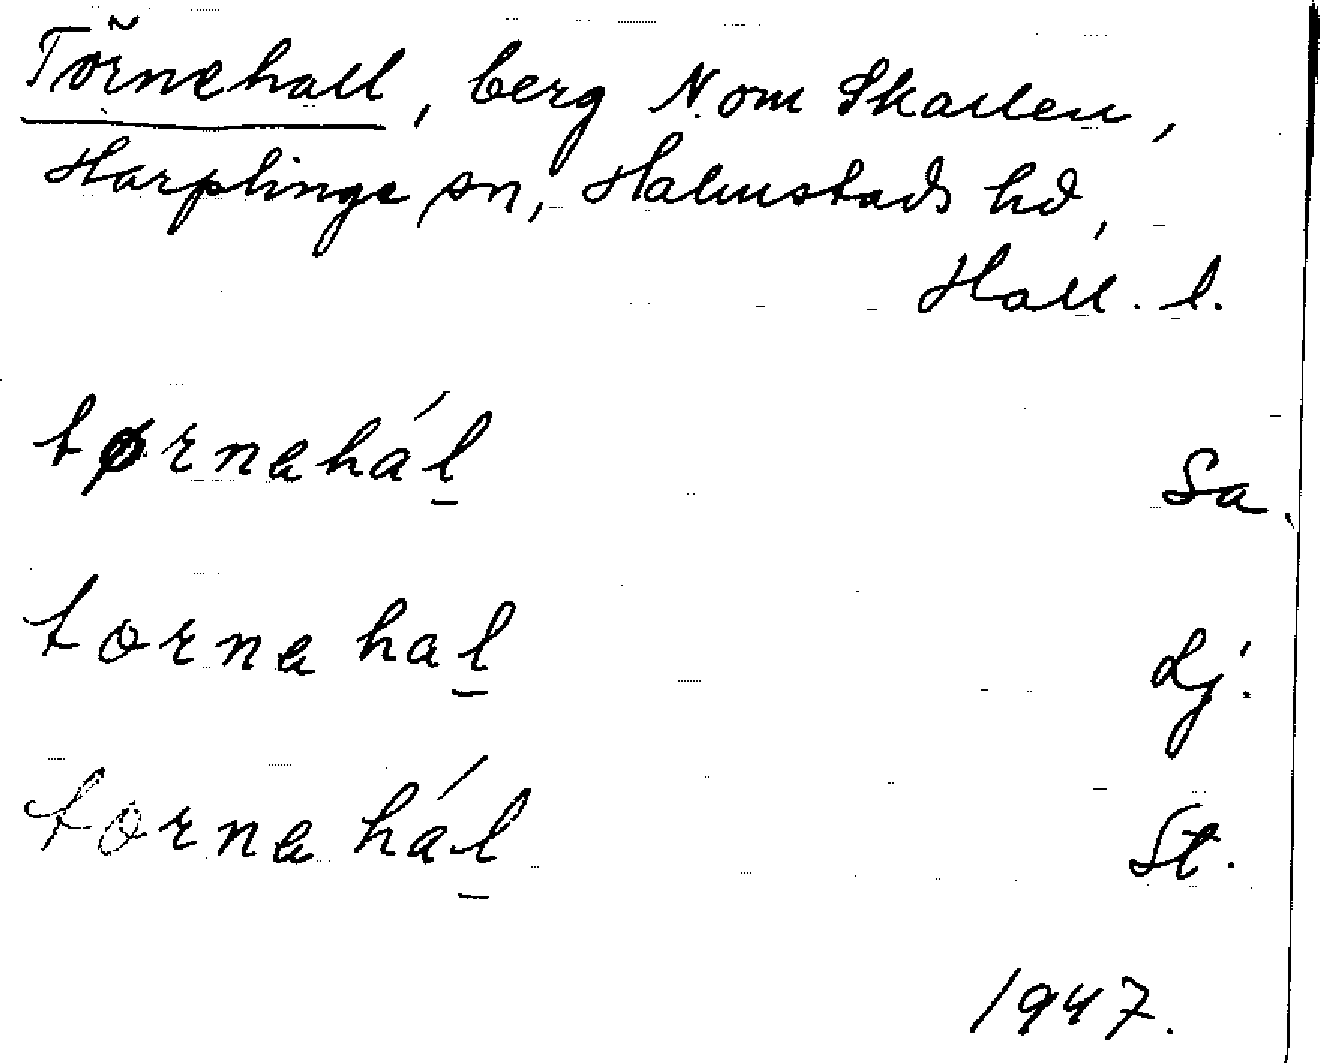 Törnehall, berg N. om Skallen,
Harplinge sn, Halmstads hd,
Hall. l.
tørnahál Sa.
torna hal Lj.
torna hál St.
1947.